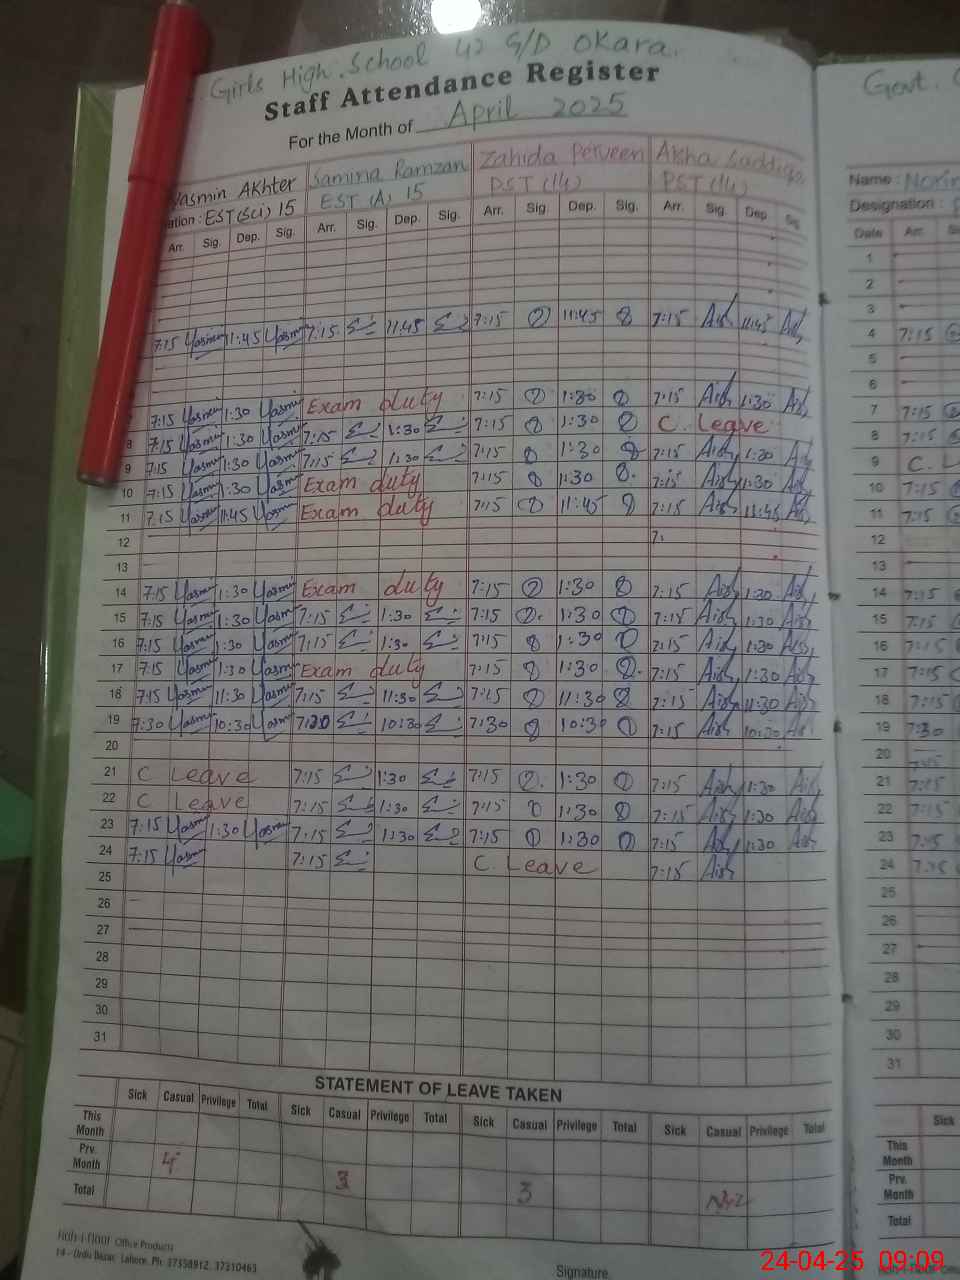 Girls High School 42 G/D Okara.
Staff Attendance Register
For the Month of April 2025
Yasmin Akhter Samina Ramzan Zahida Perveen
EST (Sci) 15 EST (A) 15 PST (14) PST (14)
Arr. Sig. Dep. Sig. Arr. Sig. Dep. Sig. Arr. Sig. Dep. Sig. Arr. Sig. Dep Sig
7:15 Yasmin 11:45 Yasmin 7:15 11:45 7:15 11:45 7:15 11:45
7:15 Yasmin 1:30 Yasmin Exam duty 7:15 1:30 7:15 1:30
8 7:15 Yasmin 1:30 Yasmin 7:15 1:30 7:15 1:30 C. Leave
9 7:15 Yasmin 1:30 Yasmin 7:15 1:30 7:15 1:30 7:15 1:30
10 7:15 Yasmin 1:30 Yasmin Exam duty 7:15 1:30 7:15 1:30
11 7:15 Yasmin 11:45 Yasmin Exam duty 7:15 11:45 7:15 11:45
12 7:
13
14 7:15 Yasmin 1:30 Yasmin Exam duty 7:15 1:30 7:15 1:30
15 7:15 Yasmin 1:30 Yasmin 7:15 1:30 7:15 1:30 7:15 1:30
16 7:15 Yasmin 1:30 Yasmin 7:15 1:30 7:15 1:30 7:15 1:30
17 7:15 Yasmin 1:30 Yasmin Exam duty 7:15 1:30 7:15 1:30
18 7:15 Yasmin 11:30 Yasmin 7:15 11:30 7:15 11:30 7:15 11:30
19 7:30 Yasmin 10:30 Yasmin 10:30 7:30 10:30 7:15 10:30
20
21 C Leave 7:15 1:30 7:15 1:30 7:15 1:30
22 C Leave 7:15 1:30 7:15 1:30 7:15 1:30
23 7:15 Yasmin 1:30 Yasmin 7:15 1:30 7:15 1:30 7:15 1:30
24 7:15 Yasmin 7:15 C. Leave 7:15
25
26
27
28
29
30
31
STATEMENT OF LEAVE TAKEN
Sick Casual Privilege Total Sick Casual Privilege Total Sick Casual Privilege Total Sick Casual Privilege Total
This Month
Prv. Month 4 3 3
Total
Office Products
14 - Urdu Bazar, Lahore. Ph: 37358912, 37310463
Signature
Govt.
Name :
Designation :
Date Arr.
1
2
3
4 7:15
5
6
7 7:15
8 7:15
9 C.
10 7:15
11 7:15
12
13
14 7:15
15 7:15
16 7:15
17 7:15
18 7:15
19 7:30
20
21 7:15
22 7:15
23 7:15
24 7:15
25
26
27
28
29
30
31
Sick
This Month
Prv. Month
Total
24-04-25 09:09